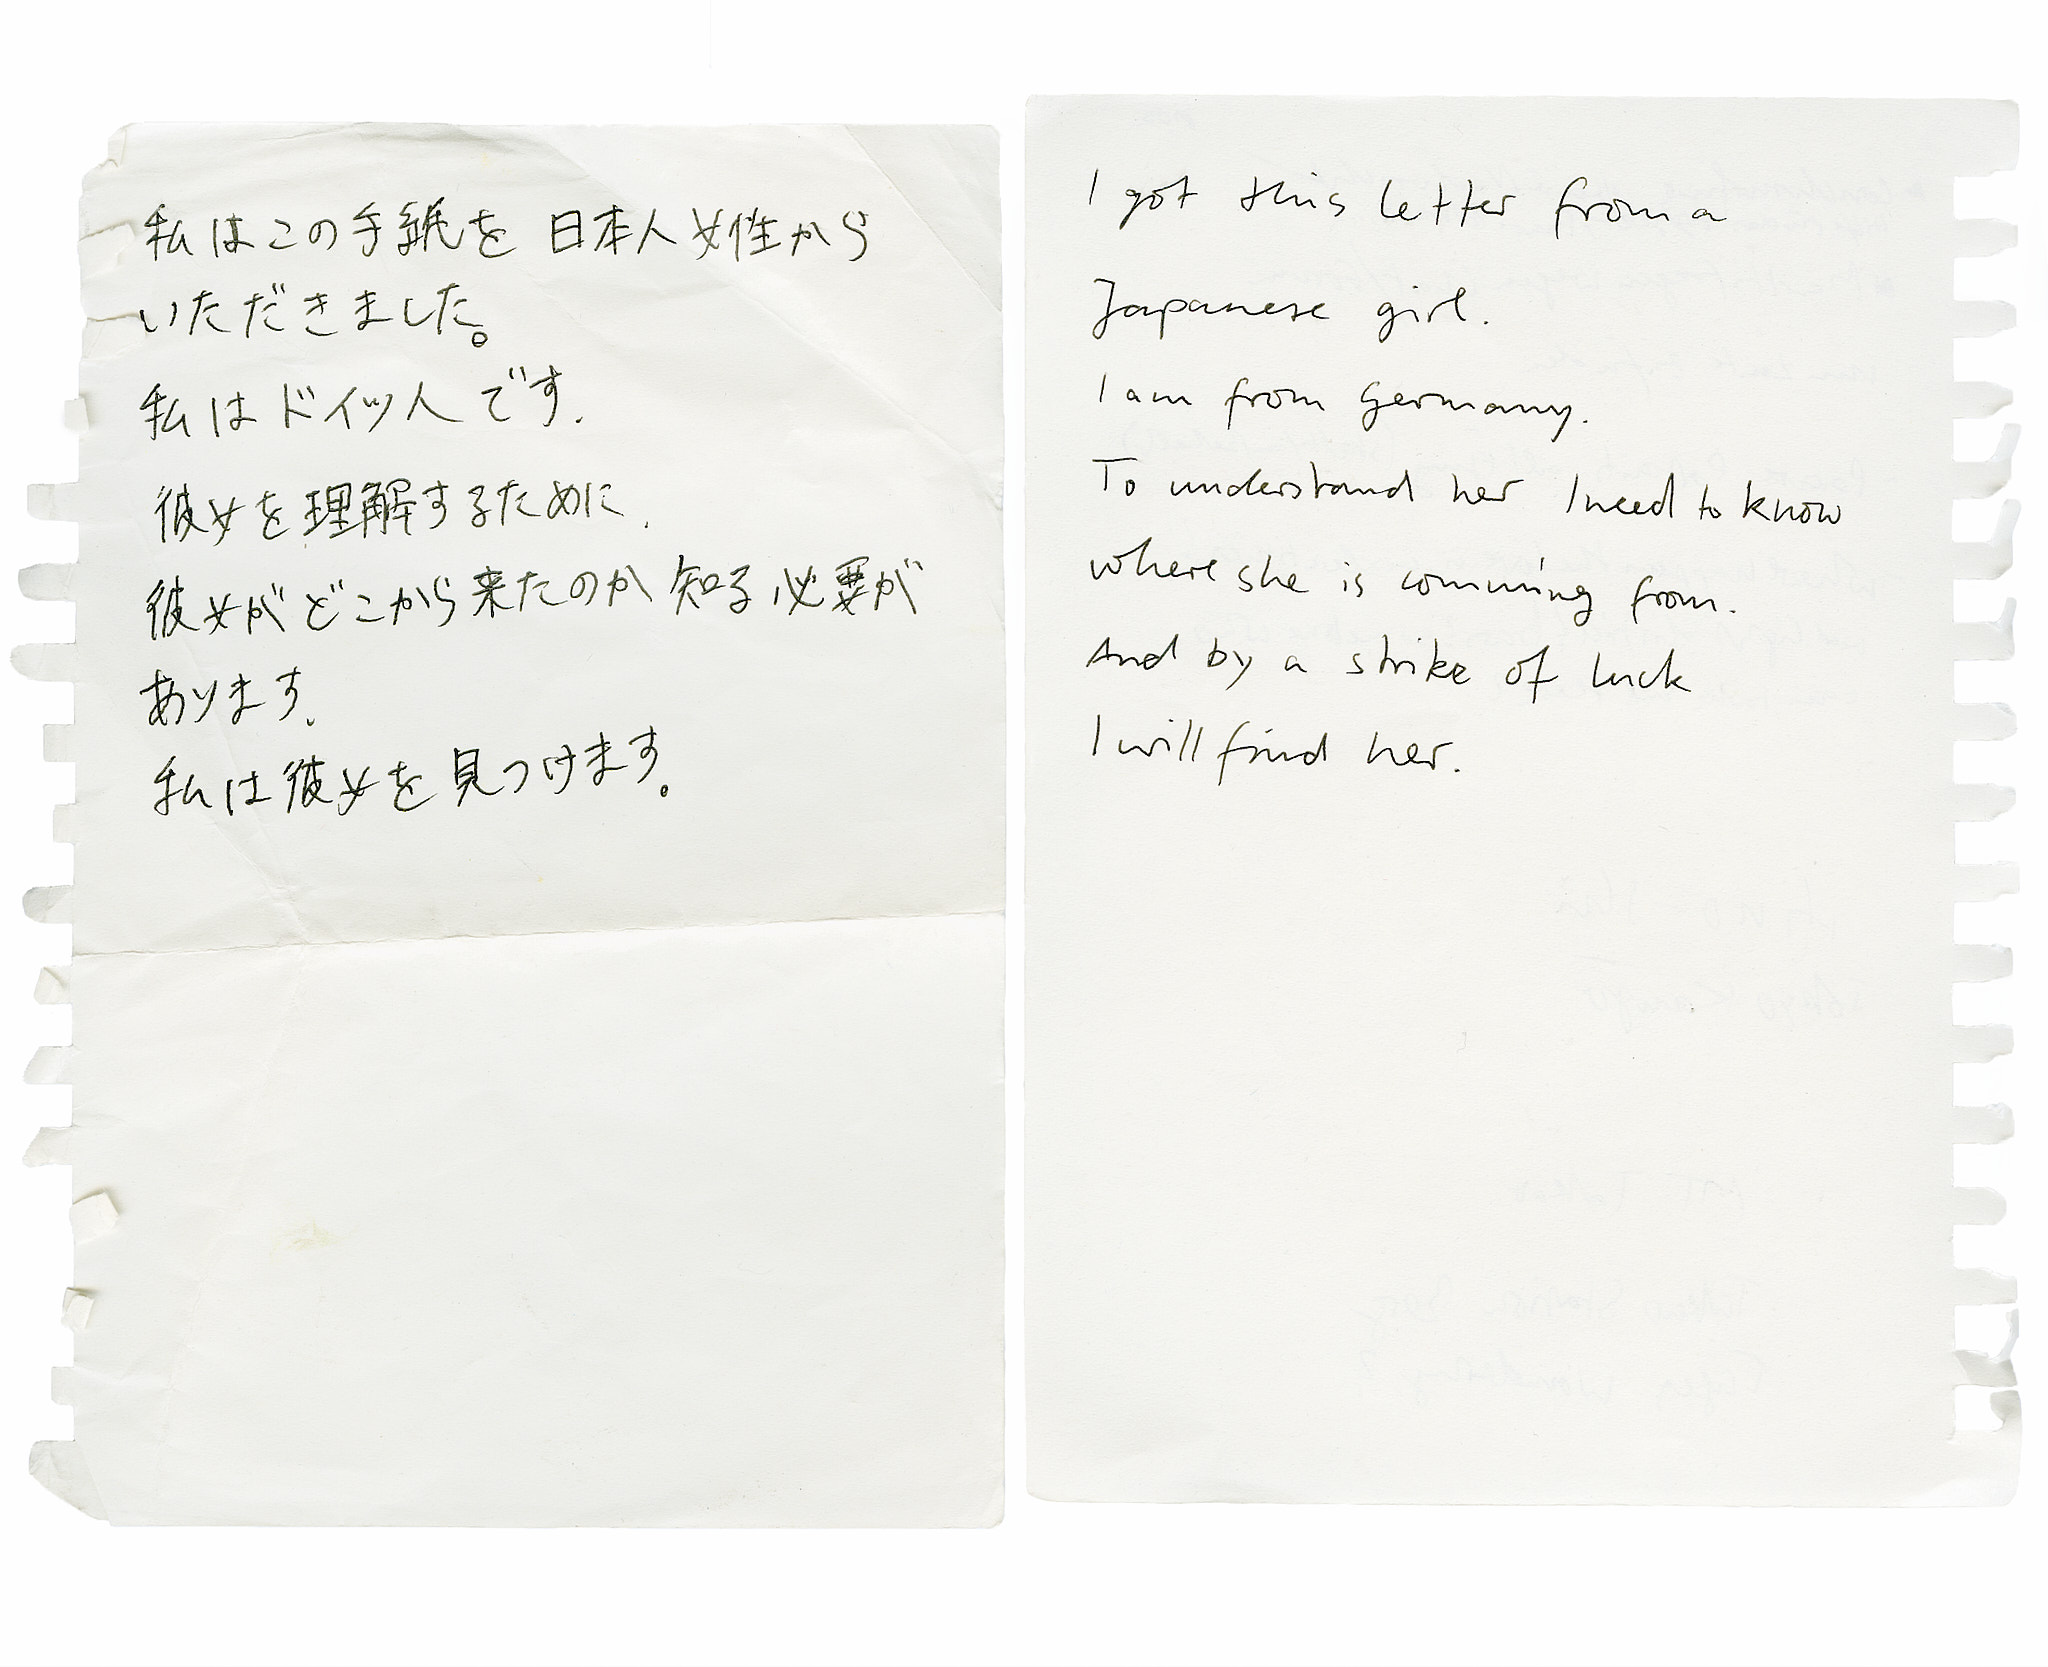 私はこの手紙を日本人女性から
いただきました。
私はドイツ人です.
彼女を理解するために.
彼女がどこから来たのか知る必要が
あります.
私は彼女を見つけます。
I got this letter from a
Japanese girl.
I am from Germany.
To understand her I need to know
where she is comming from.
And by a strike of luck
I will find her.